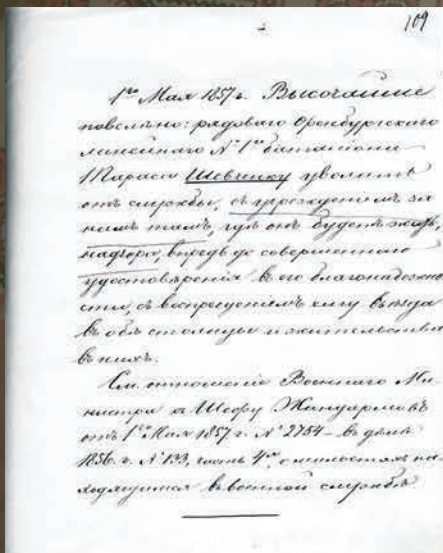 109
1го Мая 1857 г. Высочайше
повелѣно: рядоваго Оренбургскаго
линейнаго № 1го баталіона
Тараса Шевченку уволить
отъ службы, съ учрежденіемъ за
нимъ тамъ, гдѣ онъ будетъ жить,
надзора, впредь до совершеннаго
удостовѣренія въ его благонадежно-
сти, съ воспрещеніемъ ему въѣзда
въ обѣ столицы и жительства
въ нихъ.
См. отношеніе Военнаго Ми-
нистра къ Шефу Жандармовъ
отъ 1го Мая 1857 г. № 2754 – въ дѣлѣ
1856 г. № 133, часть 4я, о милостяхъ на-
ходящимся въ военной службѣ